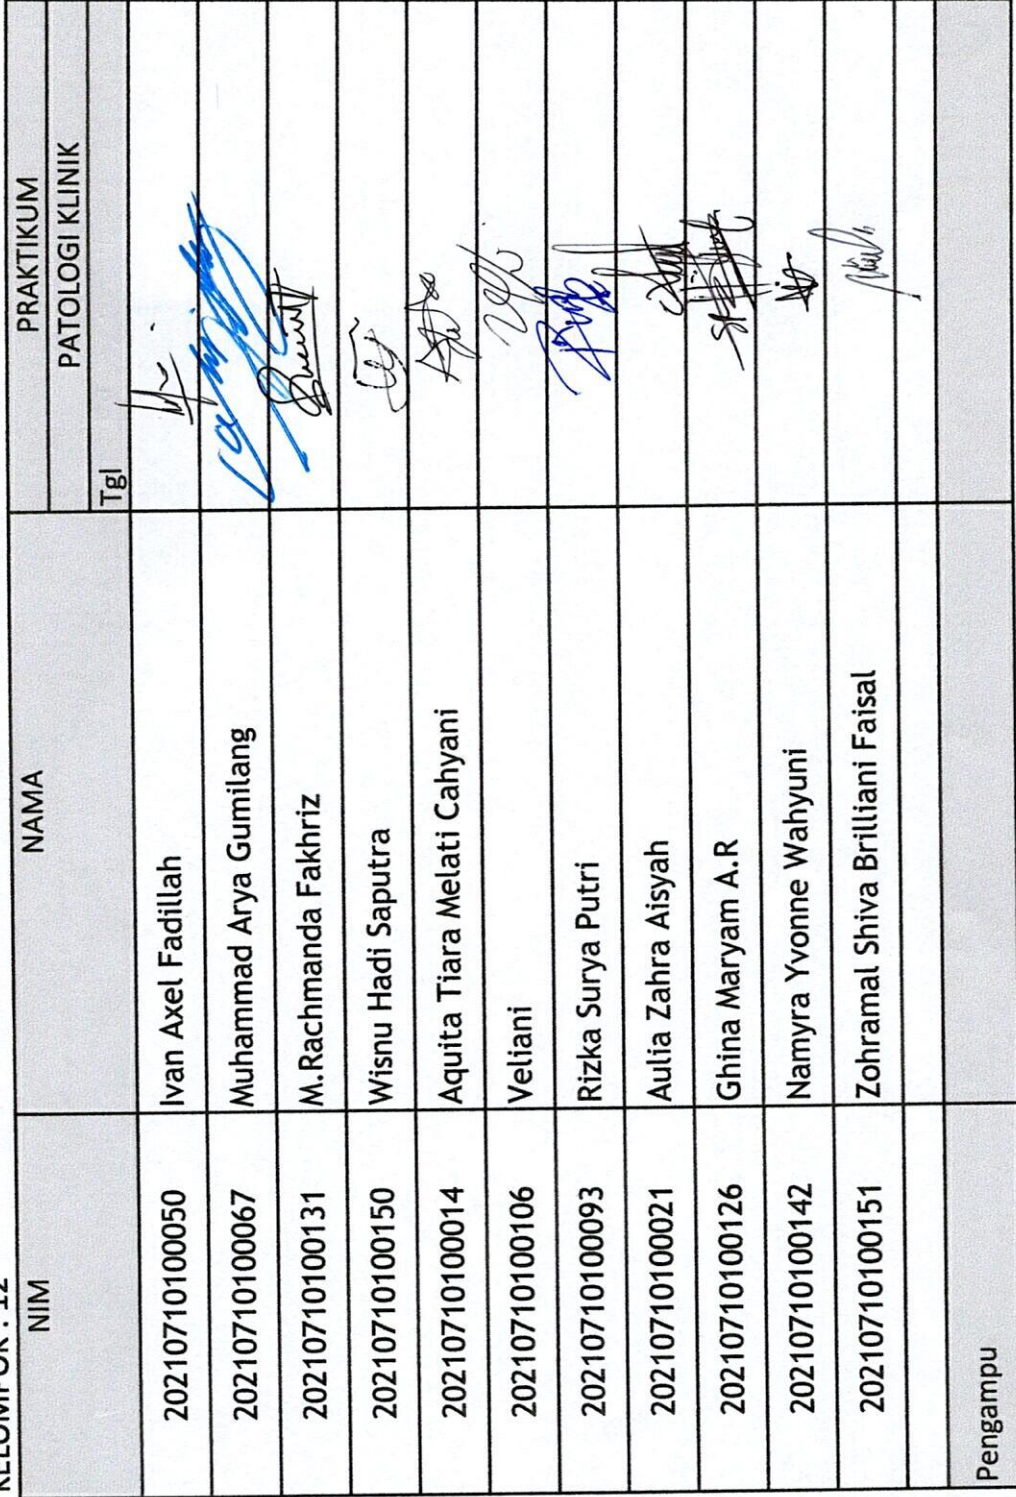 KELOMPOK : 12
NIM NAMA PRAKTIKUM
PATOLOGI KLINIK
Tgl
202107101000050 Ivan Axel Fadillah
202107101000067 Muhammad Arya Gumilang
202107101000131 M.Rachmanda Fakhriz
202107101000150 Wisnu Hadi Saputra
202107101000014 Aquita Tiara Melati Cahyani
202107101000106 Veliani
202107101000093 Rizka Surya Putri
202107101000021 Aulia Zahra Aisyah
202107101000126 Ghina Maryam A.R
202107101000142 Namyra Yvonne Wahyuni
202107101000151 Zohramal Shiva Brilliani Faisal
Pengampu